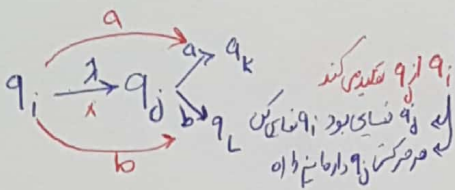 a
q_i λ q_j a q_k
b q_L
b
q_i از q_j تقلید می کند
q_j نهایی بود q_i نهایی کن
هر حرکتی q_j دارد ما هم